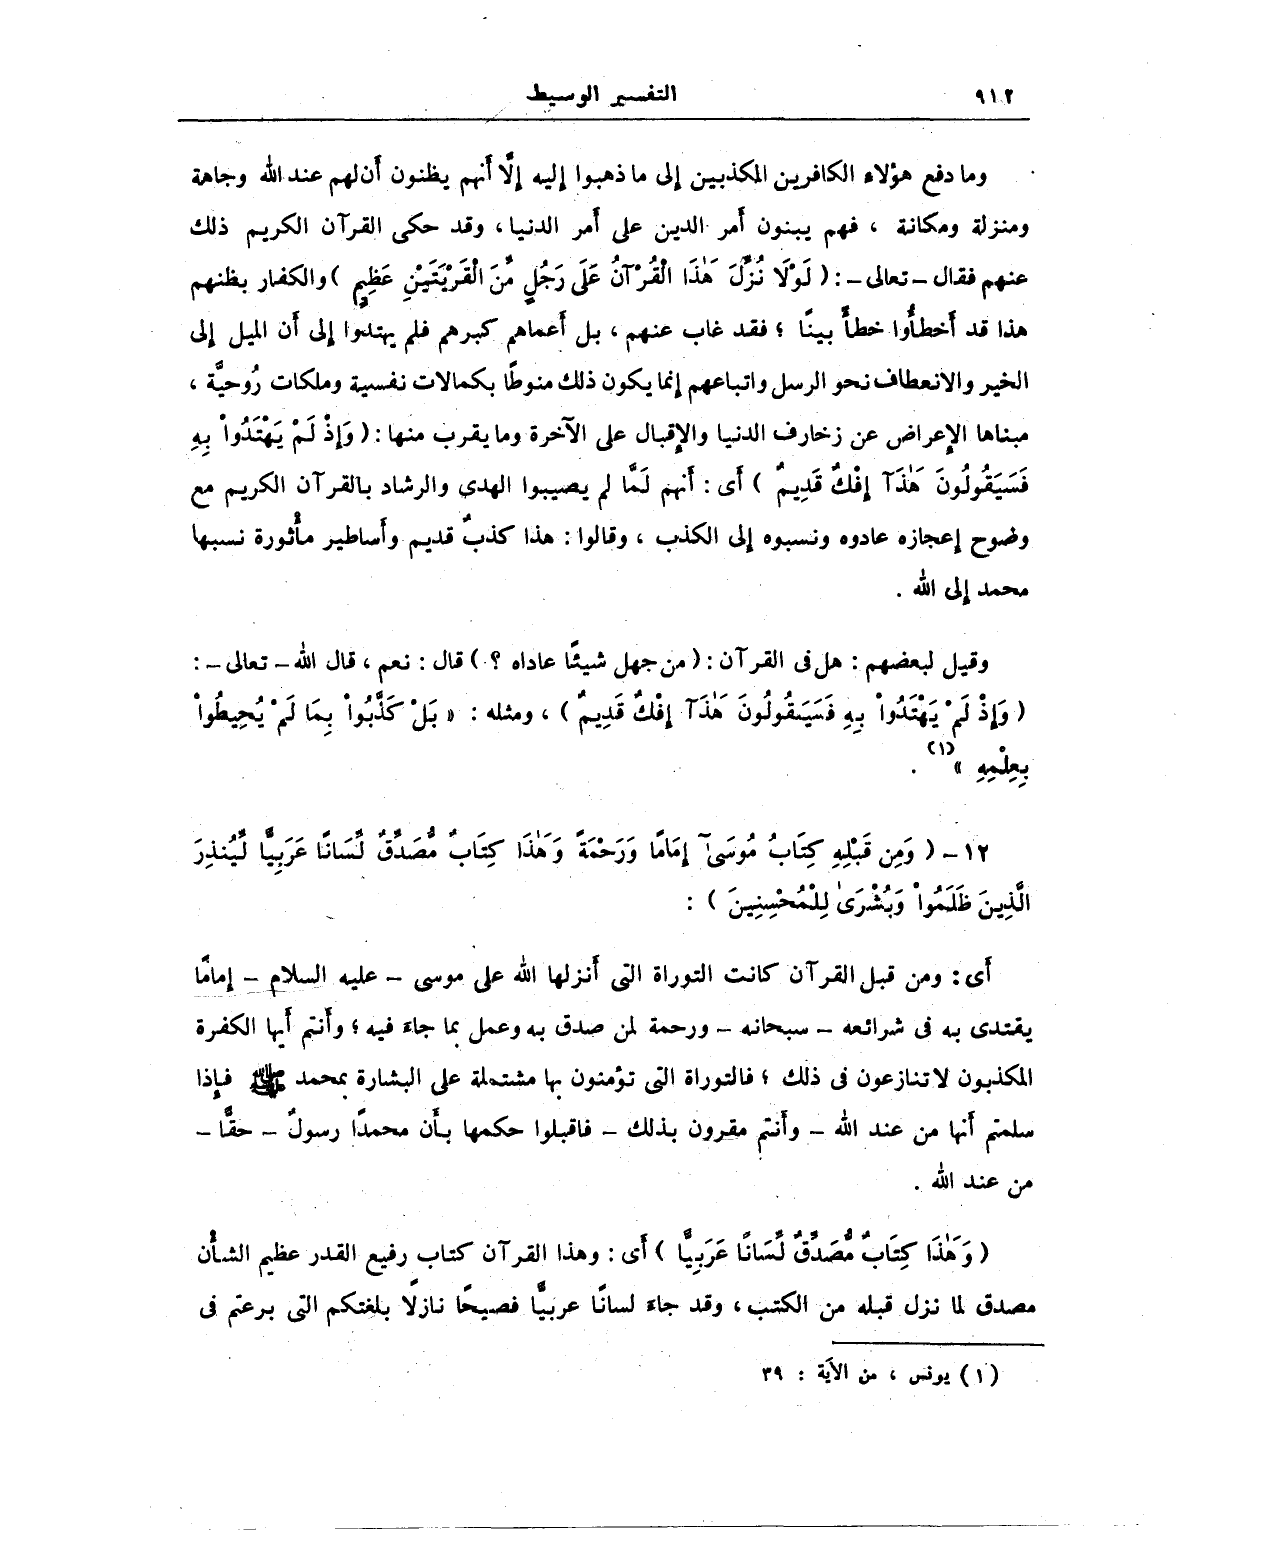 ٩١٢ التفسير الوسيط
وما دفع هؤلاء الكافرين المكذبين إلى ما ذهبوا إليه إلَّا أنهم يظنون أن لهم عند الله وجاهة
ومنزلة ومكانة ، فهم يبنون أمر الدين على أمر الدنيا ، وقد حكى القرآن الكريم ذلك
عنهم فقال – تعالى – : ( لَوْلَا نُزِّلَ هَٰذَا الْقُرْآنُ عَلَى رَجُلٍ مِّنَ الْقَرْيَتَيْنِ عَظِيمٍ ) والكفار بظنهم
هذا قد أخطأُوا خطأً بينًا ؛ فقد غاب عنهم ، بل أعماهم كبرهم فلم يهتدوا إلى أن الميل إلى
الخير والانعطاف نحو الرسل واتباعهم إنما يكون ذلك منوطًا بكمالات نفسية وملكات رُوحيَّة ،
مبناها الإعراض عن زخارف الدنيا والإقبال على الآخرة وما يقرب منها : ( وَإِذْ لَمْ يَهْتَدُواْ بِهِ
فَسَيَقُولُونَ هَٰذَآ إِفْكٌ قَدِيمٌ ) أى : أنهم لَمَّا لم يصيبوا الهدى والرشاد بالقرآن الكريم مع
وضوح إعجازه عادوه ونسبوه إلى الكذب ، وقالوا : هذا كذبٌ قديم وأساطير مأثورة نسبها
محمد إلى الله .
وقيل لبعضهم : هل فى القرآن : ( من جهل شيئًا عاداه ؟ ) قال : نعم ، قال الله – تعالى – :
( وَإِذْ لَمْ يَهْتَدُواْ بِهِ فَسَيَقُولُونَ هَٰذَآ إِفْكٌ قَدِيمٌ ) ، ومثله : « بَلْ كَذَّبُواْ بِمَا لَمْ يُحِيطُواْ
بِعِلْمِهِ » (١) .
١٢ – ( وَمِن قَبْلِهِ كِتَابُ مُوسَىٰٓ إِمَامًا وَرَحْمَةً وَهَٰذَا كِتَابٌ مُّصَدِّقٌ لِّسَانًا عَرَبِيًّا لِّيُنذِرَ
الَّذِينَ ظَلَمُواْ وَبُشْرَىٰ لِلْمُحْسِنِينَ ) :
أى : ومن قبل القرآن كانت التوراة التى أنزلها الله على موسى – عليه السلام – إمامًا
يقتدى به فى شرائعه – سبحانه – ورحمة لمن صدق به وعمل بما جاءَ فيه ؛ وأنتم أيها الكفرة
المكذبون لا تنازعون فى ذلك ؛ فالتوراة التى تؤمنون بها مشتملة على البشارة بمحمد ﷺ فإذا
سلمتم أنها من عند الله – وأنتم مقرون بذلك – فاقبلوا حكمها بأن محمدًا رسولٌ – حقًّا –
من عند الله .
( وَهَٰذَا كِتَابٌ مُّصَدِّقٌ لِّسَانًا عَرَبِيًّا ) أى : وهذا القرآن كتاب رفيع القدر عظيم الشأن
مصدق لما نزل قبله من الكتب ، وقد جاءَ لسانًا عربيًّا فصيحًا نازلًا بلغتكم التى برعتم فى
(١) يونس ، من الآية : ٣٩